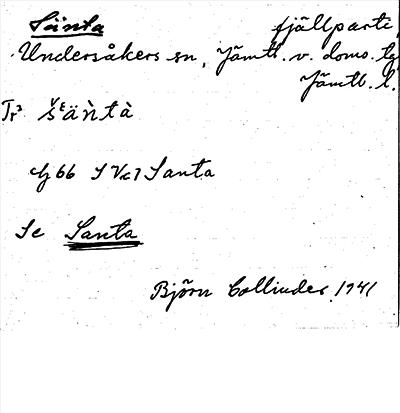 Sänta fjällparti,
Undersåkers sn, Jämtl. v. doms. tg
Jämtl. l.
Tr²
G 66 S V c 1 Santa
Se Santa
Björn Collinder 1941